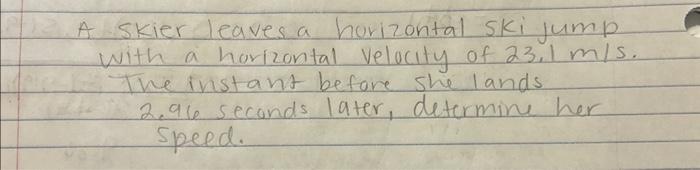 A skier leaves a horizontal ski jump
with a horizontal velocity of 23.1 m/s.
The instant before she lands
2.96 seconds later, determine her
speed.